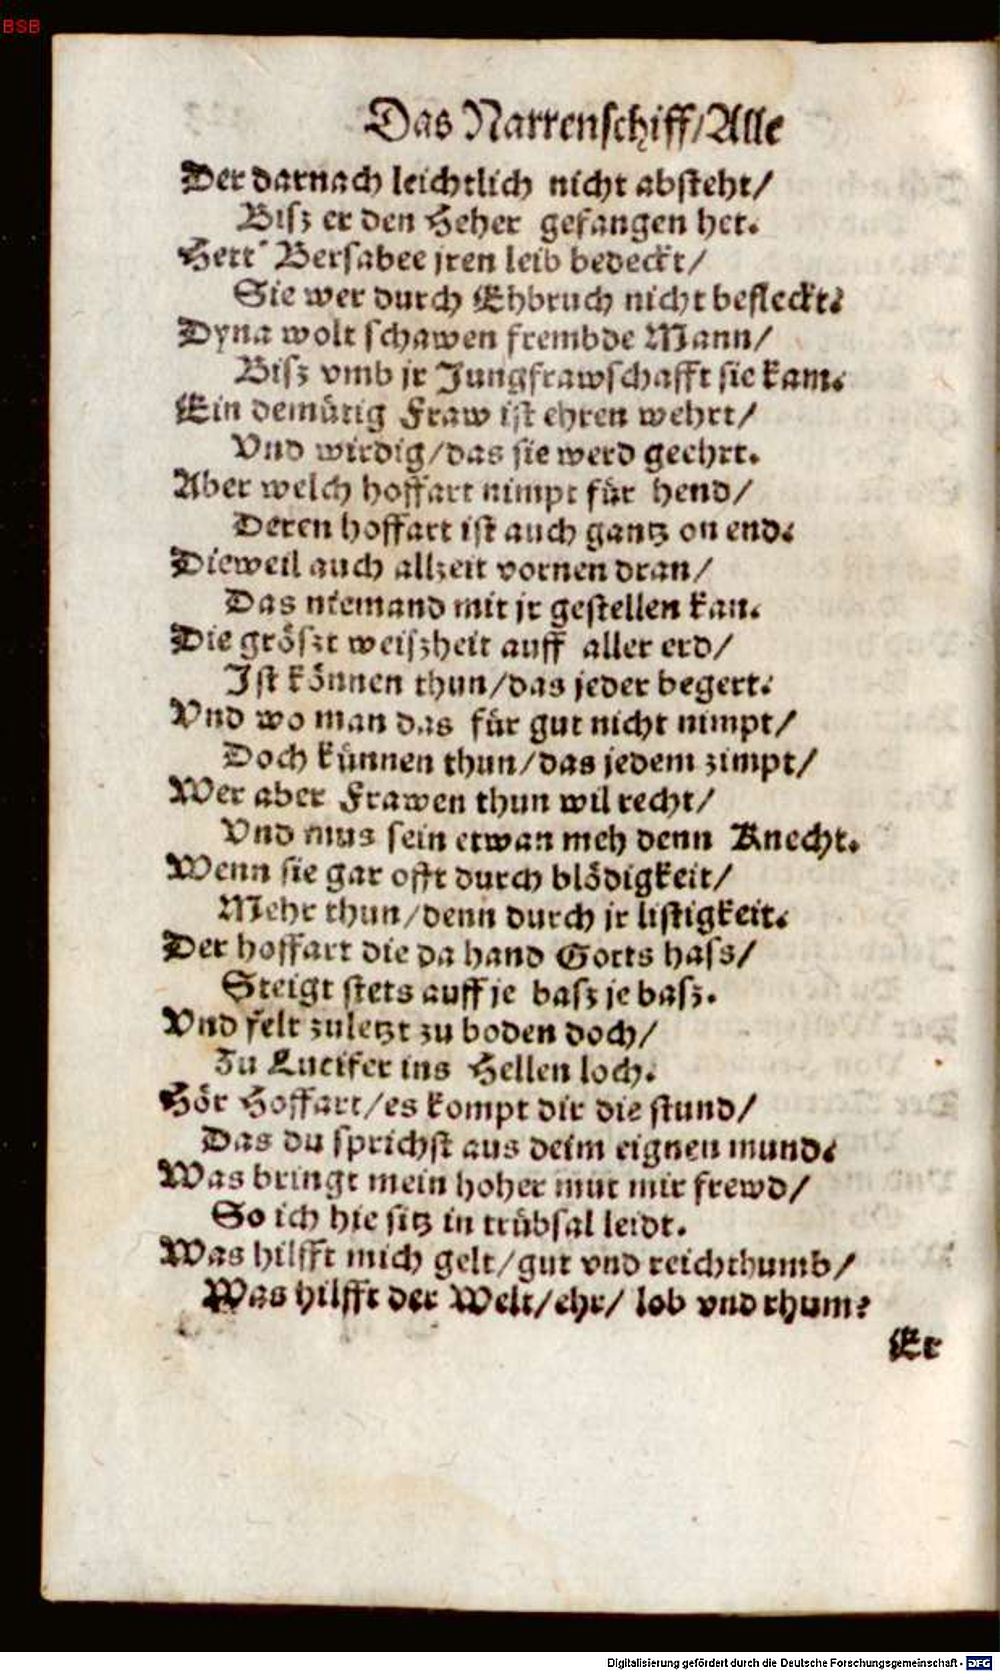 BSB
Das Narrenschiff/Alle
Der darnach leichtlich nicht absteht/
Bisz er den Heher gefangen het.
Hett Bersabee jren leib bedeckt/
Sie wer durch Ehbruch nicht befleckt.
Dyna wolt schawen frembde Mann/
Bisz vmb jr Jungfrawschafft sie kam.
Ein demütig Fraw ist ehren wehrt/
Vnd wirdig/das sie werd geehrt.
Aber welch hoffart nimpt für hend/
Deren hoffart ist auch gantz on end.
Dieweil auch allzeit vornen dran/
Das niemand mit jr gestellen kan.
Die gröszt weiszheit auff aller erd/
Ist können thun/das jeder begert.
Vnd wo man das für gut nicht nimpt/
Doch künnen thun/das jedem zimpt/
Wer aber Frawen thun wil recht/
Vnd mus sein etwan meh denn Knecht.
Wenn sie gar offt durch blödigkeit/
Mehr thun/denn durch jr listigkeit.
Der hoffart die da hand Gotts hass/
Steigt stets auff je basz je basz.
Vnd felt zuletzt zu boden doch/
Zu Lucifer ins Hellen loch.
Hör Hoffart/es kompt dir die stund/
Das du sprichst aus deim eignen mund.
Was bringt mein hoher mut mir frewd/
So ich hie sitz in trübsal leidt.
Was hilfft mich gelt/gut vnd reichthumb/
Was hilfft der Welt/ehr/ lob vnd rhum?
Er
Digitalisierung gefördert durch die Deutsche Forschungsgemeinschaft - DFG